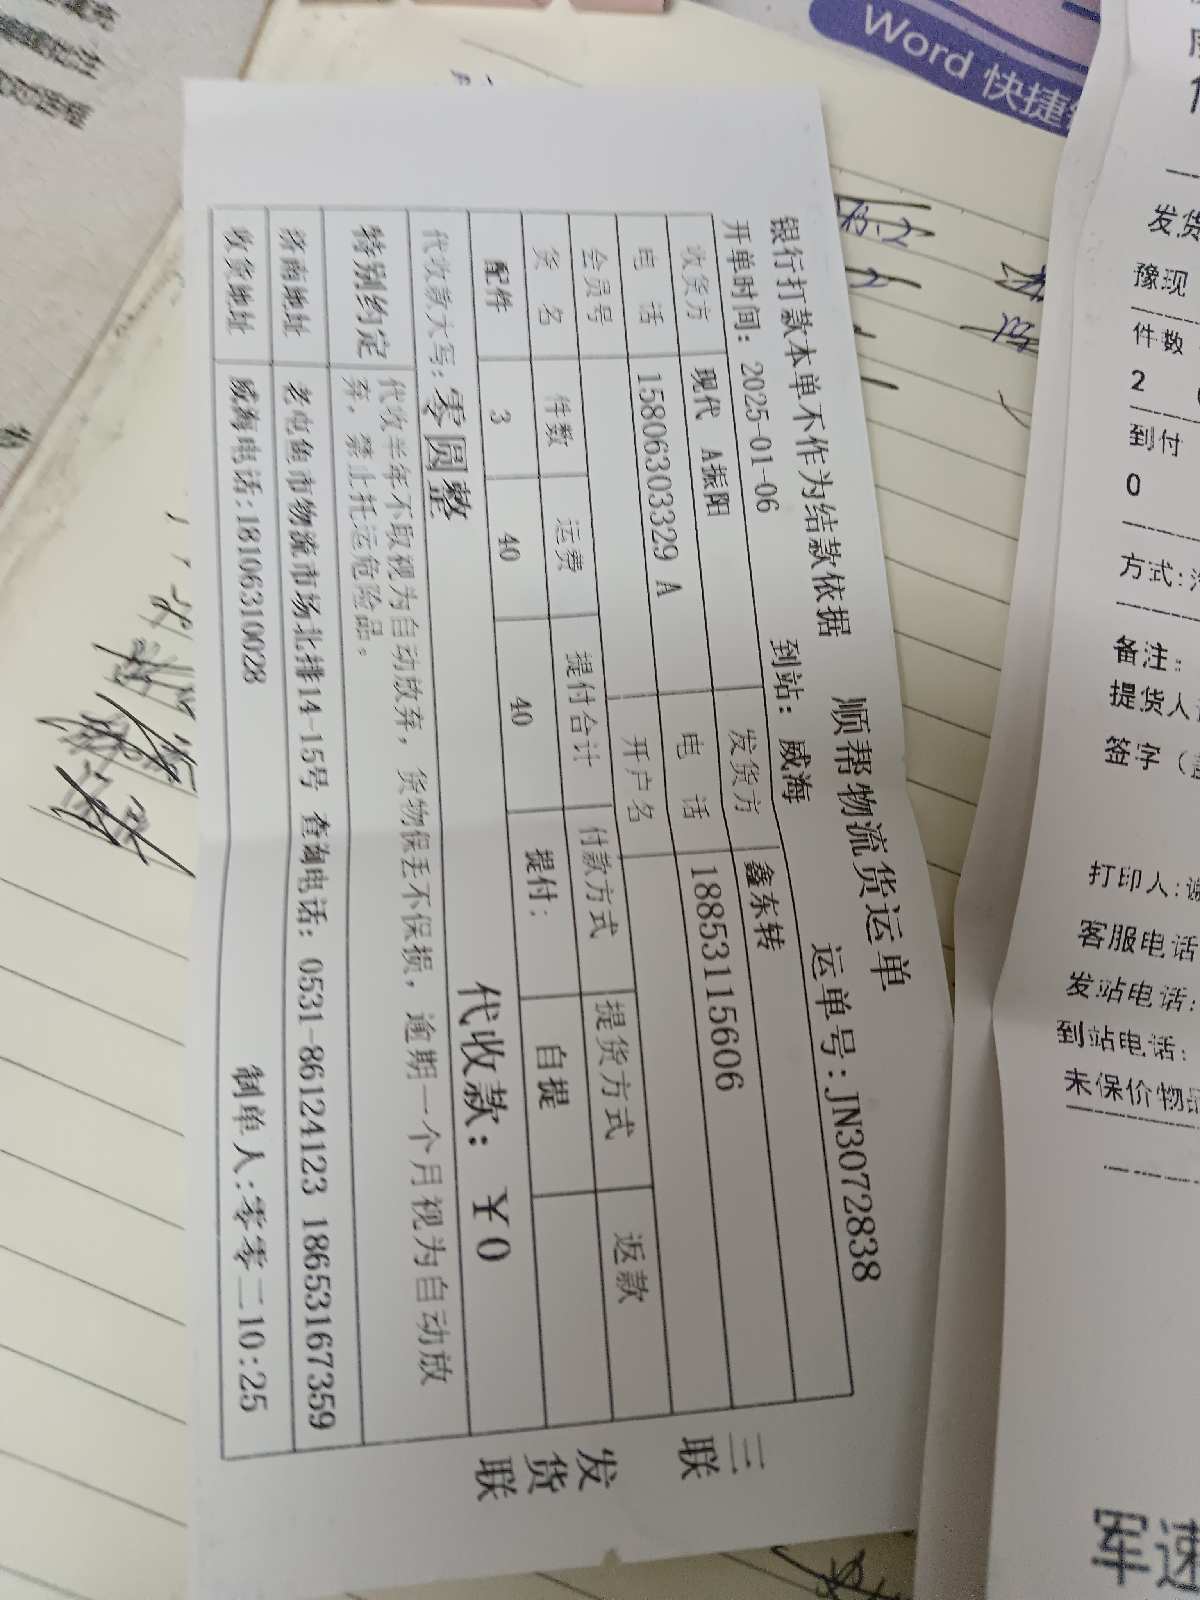 银行打款本单不作为结款依据 顺帮物流货运单
开单时间: 2025-01-06 到站: 威海 运单号:JN3072838
收货方 现代 A振阳 发货方 鑫东转
电 话 15806303329 A 电 话 18853115606
会员号 开户名
货 名 件数 运费 提付合计 付款方式 提货方式 返款
配件 3 40 40 提付: 自提
代收款大写: 零圆整 代收款: ￥0
特别约定 代收半年不取视为自动放弃, 货物保丢不保损, 逾期一个月视为自动放
弃, 禁止托运危险品。
济南地址 老屯鱼市物流市场北排14-15号 查询电话: 0531-86124123 18653167359
收货地址 威海电话:18106310028 制单人:零零二10:25
三联
发货联
Word 快捷
发货
豫现
件数
2
到付
0
方式:
备注:
提货人
签字
打印人:谢
客服电话
发站电话:
到站电话:
未保价物品
军速